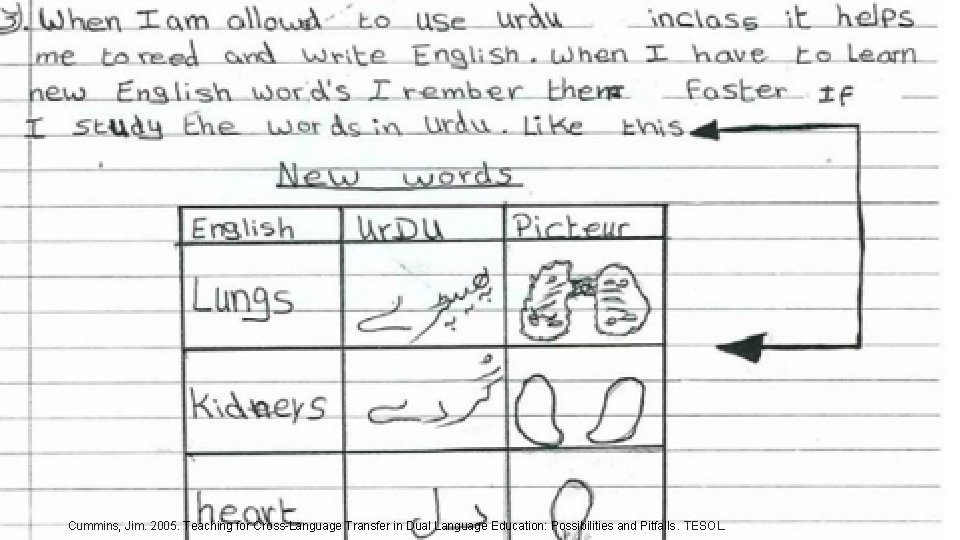 3). When I am allowd to use urdu in class it helps
me to reed and write English. When I have to learn
new English word's I rember them Faster If
I study the words in urdu. Like this
New words
English UrDU Picteur
Lungs پھیپڑے
Kidneys گردے
heart دل
Cummins, Jim. 2005. Teaching for Cross-Language Transfer in Dual Language Education: Possibilities and Pitfalls. TESOL.